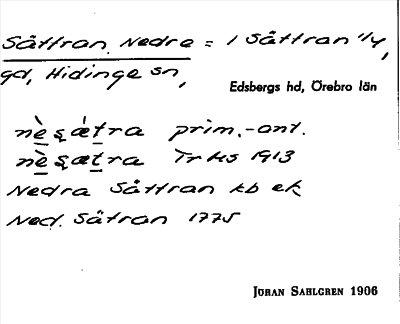 Såttran, Nedre = 1 Såttran 1/4,
gd, Hidinge sn,
Edsbergs hd, Örebro län
nè̱s̨ æ̀t̠ra prim.-ant.
nè̱s̨æt̠ra Tr HS 1913
Nedra Såttran kb ek
Ned. Såtran 1775
JÖRAN SAHLGREN 1906